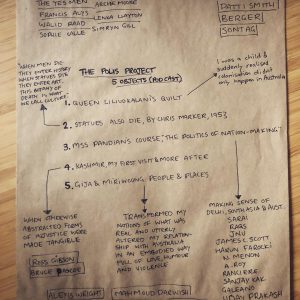 THE YES MEN
ARCHIE MOORE
FRANCIS ALYS
LENKA CLAYTON
WALID RAAD
SIMRYN GILL
SOPHIE CALLE
PATTI SMITH
BERGER
SONTAG
"WHEN MEN DIE
THEY ENTER HISTORY
WHEN STATUES DIE
THEY ENTER ART.
THIS BOTANY OF
DEATH IS WHAT
WE CALL CULTURE."
THE POLIS PROJECT
5 OBJECTS (PODCAST)
I was a child &
suddenly realised
colonisation didn't
only happen in Australia
1. QUEEN LILIUOKALANI'S QUILT
2. STATUES ALSO DIE, BY CHRIS MARKER, 1953
3. MSS PANDIAN'S COURSE, 'THE POLITICS OF NATION-MAKING'
4. KASHMIR, MY FIRST VISIT & MORE AFTER
5. GIJA & MIRIWOONG PEOPLE & PLACES
WHEN OTHERWISE
ABSTRACTED FORMS
OF INJUSTICE WERE
MADE TANGIBLE
ROSS GIBSON
BRUCE PASCOE
TRANSFORMED MY
NOTIONS OF WHAT WAS
REAL AND UTTERLY
ALTERED MY RELATION-
SHIP WITH AUSTRALIA
IN AN EMBODIED WAY
FULL OF LOVE, HUMOUR
AND VIOLENCE
MAKING SENSE OF
DELHI, SOUTH ASIA & AUST.
SARAI
RAQS
JNU
JAMES C. SCOTT
HARUN FAROCKI
N. MENON
A. ROY
RANCIERE
SANJAY KAK
GALEANO
UDAY PRAKASH
ALEXIS WRIGHT
MAHMOUD DARWISH